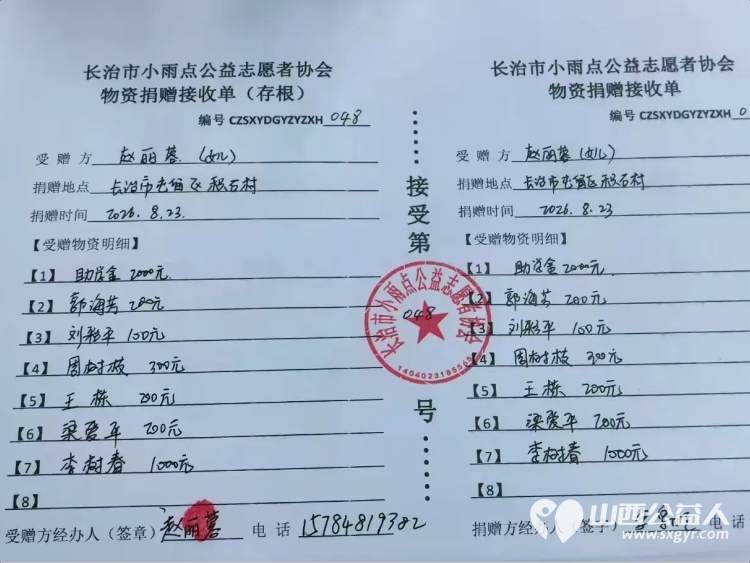 长治市小雨点公益志愿者协会
物资捐赠接收单（存根）
编号 CZSXYDGYZYZXH 048
受 赠 方 赵丽蓉（女儿）
捐赠地点 长治市屯留区积石村
捐赠时间 2026.8.23
【受赠物资明细】
【1】 助学金 2000元
【2】 郭海芳 200元
【3】 刘彩平 100元
【4】 周树枝 300元
【5】 王栋 200元
【6】 梁爱平 200元
【7】 李树春 1000元
【8】
受赠方经办人（签章）赵丽蓉 电 话 15784819382
接受第
048
号
长治市小雨点公益志愿者协会
长治市小雨点公益志愿者协会
物资捐赠接收单
编号 CZSXYDGYZYZXH 0
受 赠 方 赵丽蓉（女儿）
捐赠地点 长治市屯留区积石村
捐赠时间 2026.8.23
【受赠物资明细】
【1】 助学金 2000元
【2】 郭海芳 200元
【3】 刘彩平 100元
【4】 周树枝 300元
【5】 王栋 200元
【6】 梁爱平 200元
【7】 李树春 1000元
【8】
捐赠方经办人（签字） 电 话
山西公益人
www.sxgyr.com